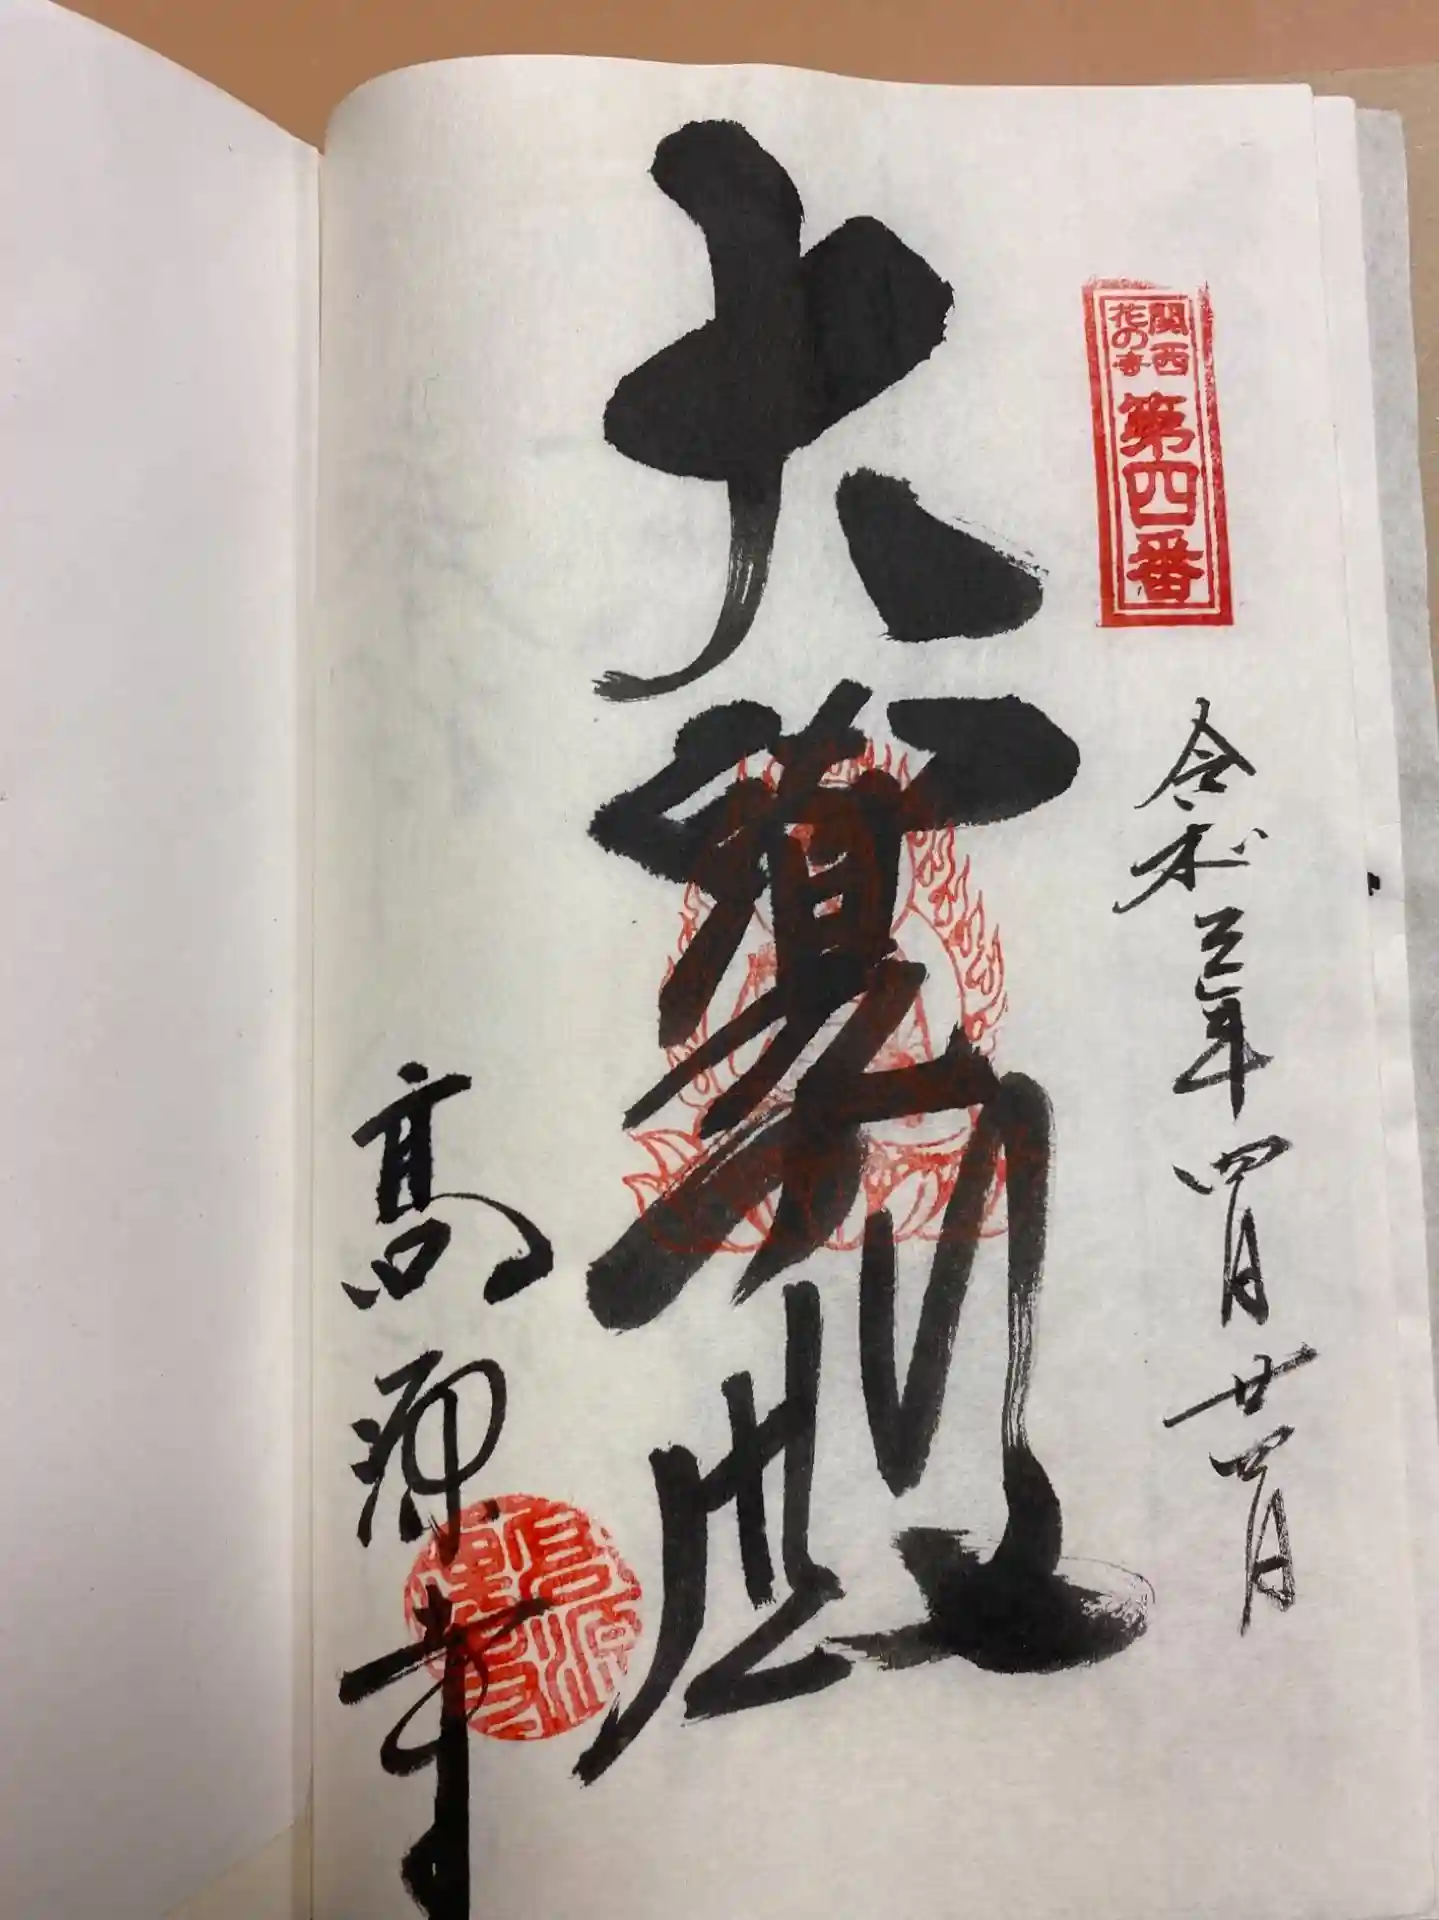 関西
花の寺
第四番
令和三年四月廿四日
大寳殿
高源寺